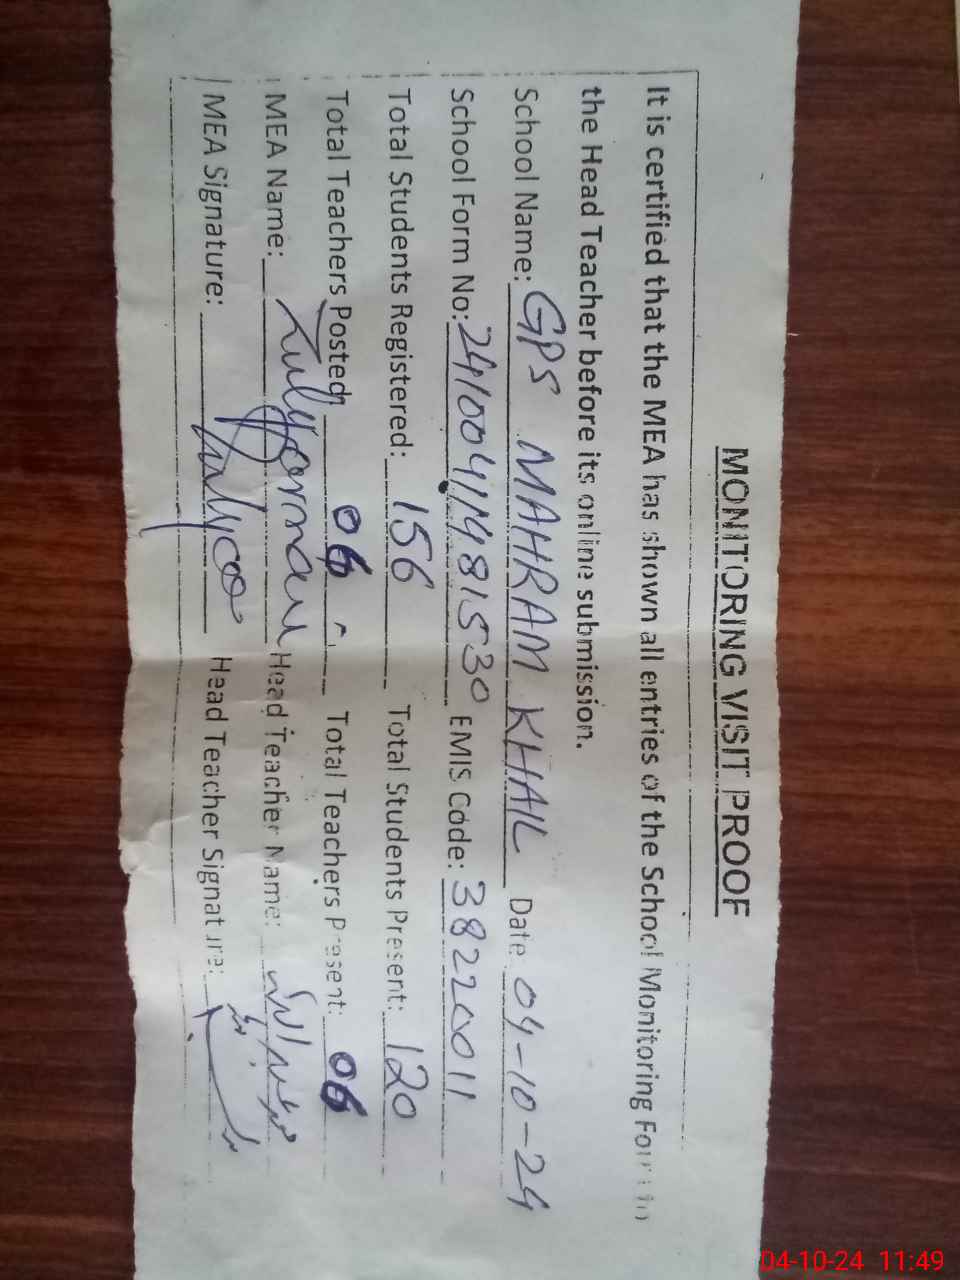 MONITORING VISIT PROOF
It is certified that the MEA has shown all entries of the School Monitoring Form to
the Head Teacher before its online submission.
School Name: GPS MAHRAM KHAIL Date 04-10-24
School Form No: 2410041481530 EMIS Code: 38220011
Total Students Registered: 156 Total Students Present: 120
Total Teachers Posted: 06 Total Teachers Present: 06
MEA Name: Head Teacher Name:
MEA Signature: Head Teacher Signature:
04-10-24 11:49